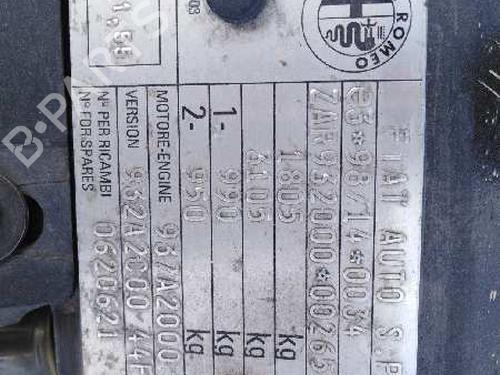 ROMEO
FIAT AUTO S.P
e3*98/14*0034
ZAR932000*00265
1805 kg
3105 kg
1- 990 kg
2- 950 kg
MOTORE-ENGINE 937A2000
VERSION 932A2C00 44F
N° PER RICAMBI
N° FOR SPARES 0620621
1,55
B-PARTS